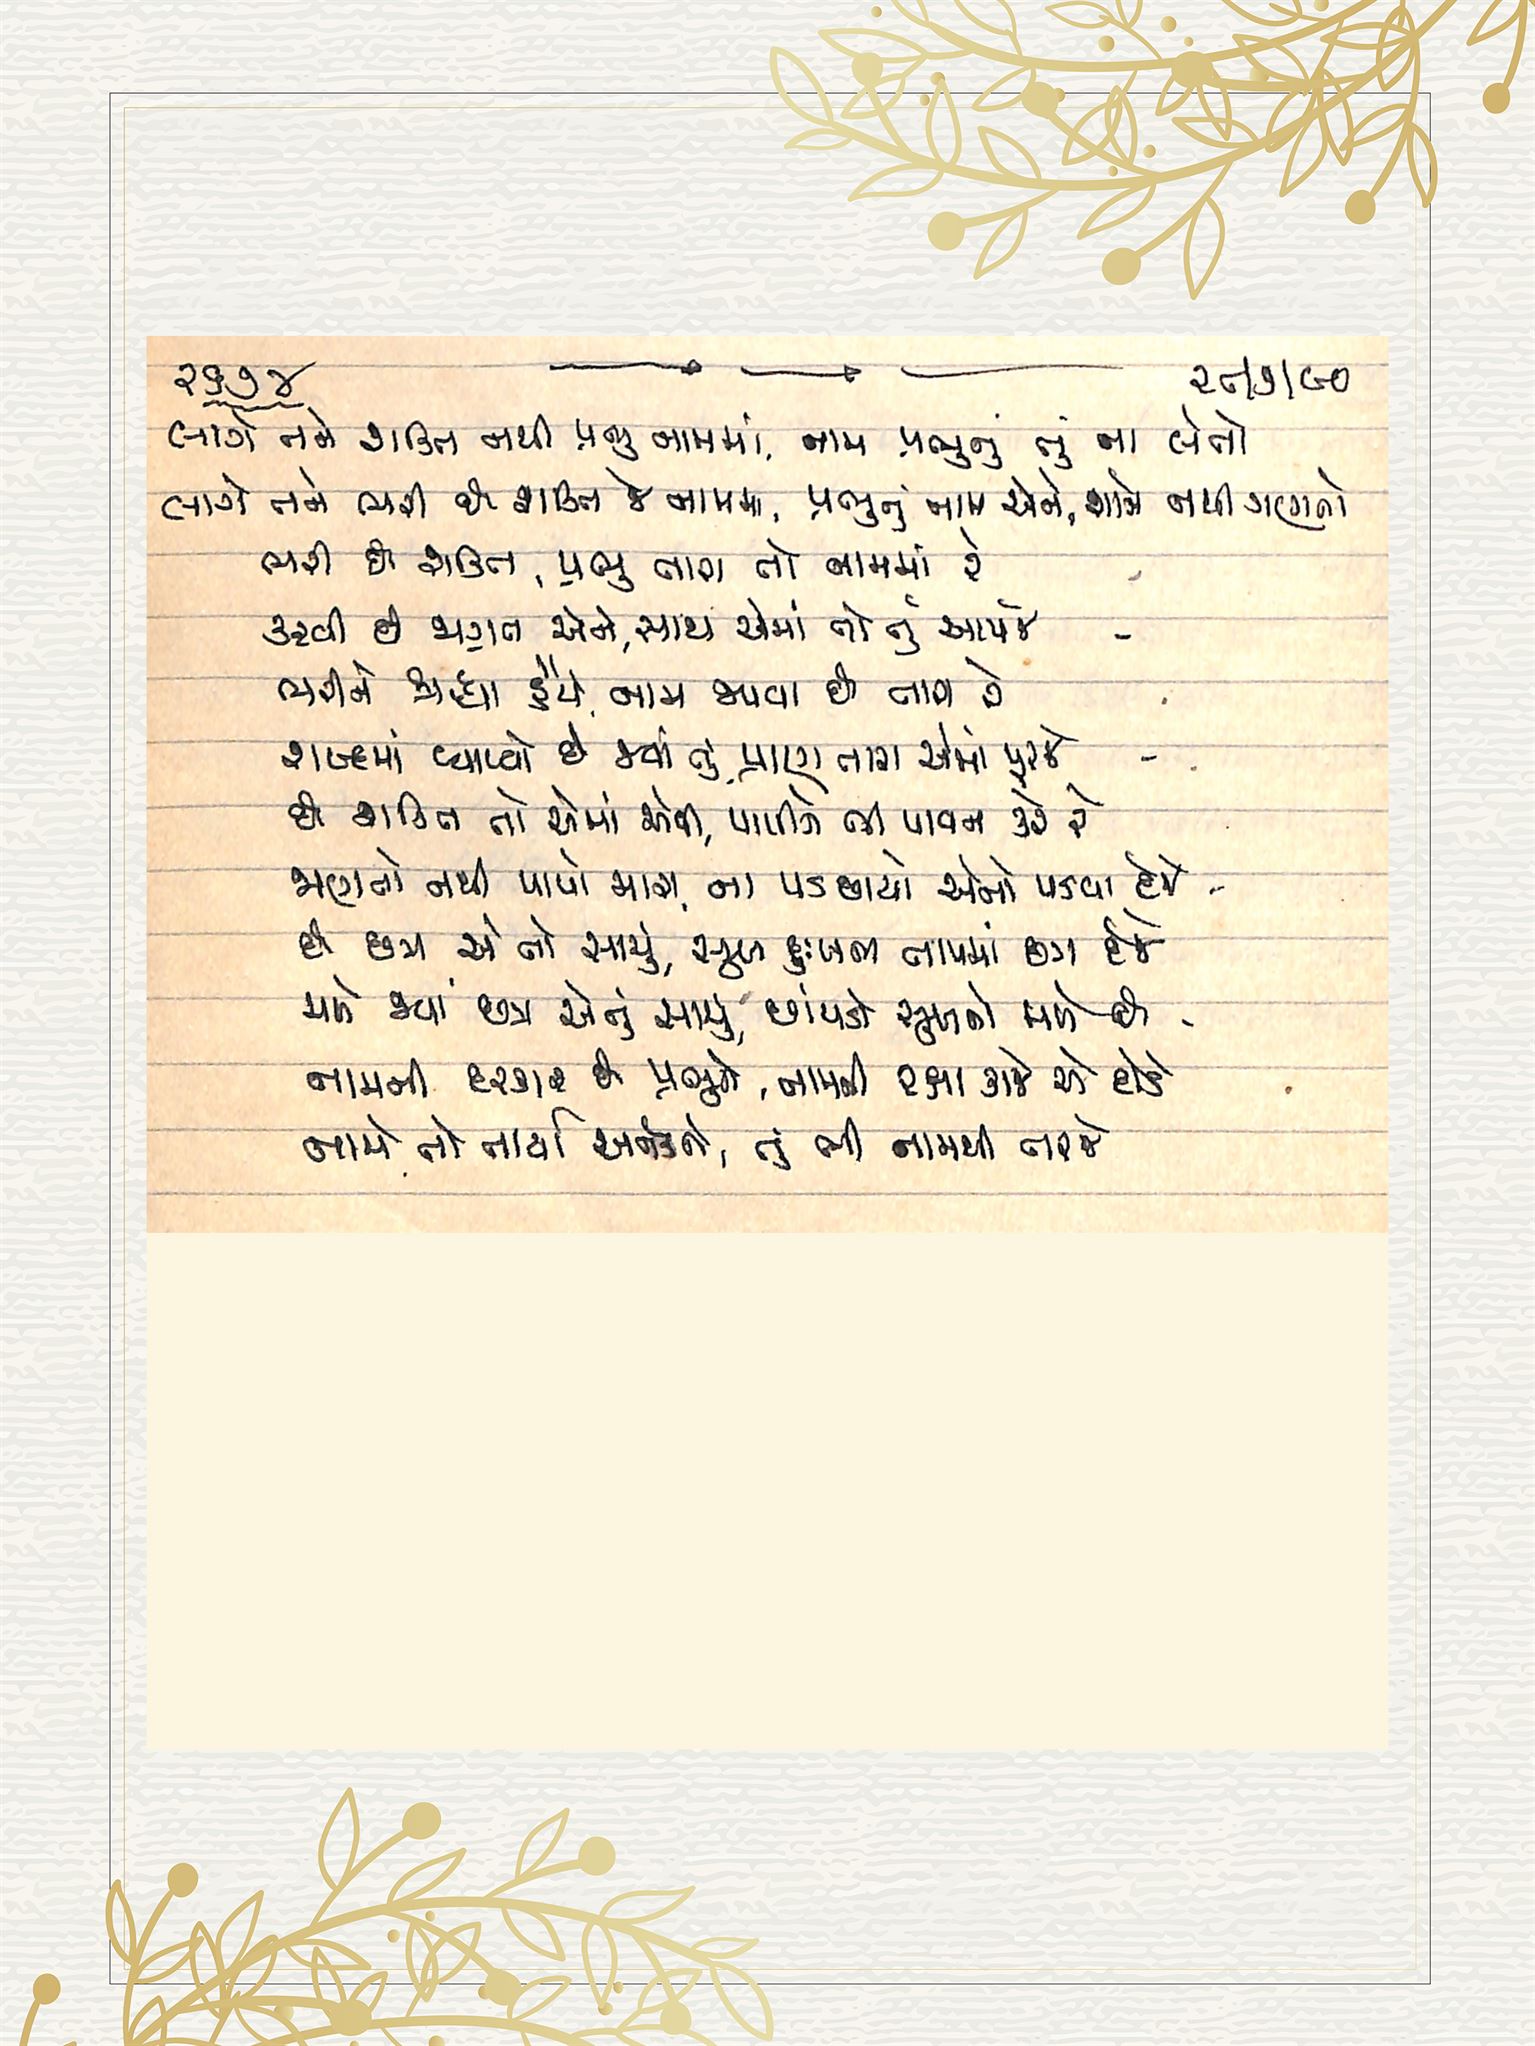 ૨૬૭૪ ૨૮/૭/૯૦
લાગે તને શક્તિ નથી પ્રભુ નામમાં, નામ પ્રભુનું તું ના લેતો
લાગે તને ભરી છે શક્તિ જે નામમાં, પ્રભુનું નામ એને, શાને નથી ગણતો
ભરી છે શક્તિ, પ્રભુ તારા તો નામમાં રે
કરવી છે જાગૃત એને, સાથ એમાં તો તું આપજે -
ભરીને શ્રદ્ધા હૈયે, નામ જપવા છે તારા રે
શબ્દમાં વ્યાપ્યો છે જ્યાં તું, પ્રાણ તારા એમાં પૂરજે -
છે શક્તિ તો એમાં એવી, પાપીને ભી પાવન કરે રે
જાણતો નથી પાપો મારા, ના પડછાયો એનો પડવા દેજે -
છે છત્ર એ તો સાચું, સુખ દુઃખના તાપમાં છત્ર દેજે
મળે જ્યાં છત્ર એનું સાચું, છાંયડો સુખનો મળે છે -
નામની દરકાર છે પ્રભુને, નામની રક્ષા કાજે એ દોડે
નામે તો તાર્યા અનેકને, તું ભી નામથી તરજે